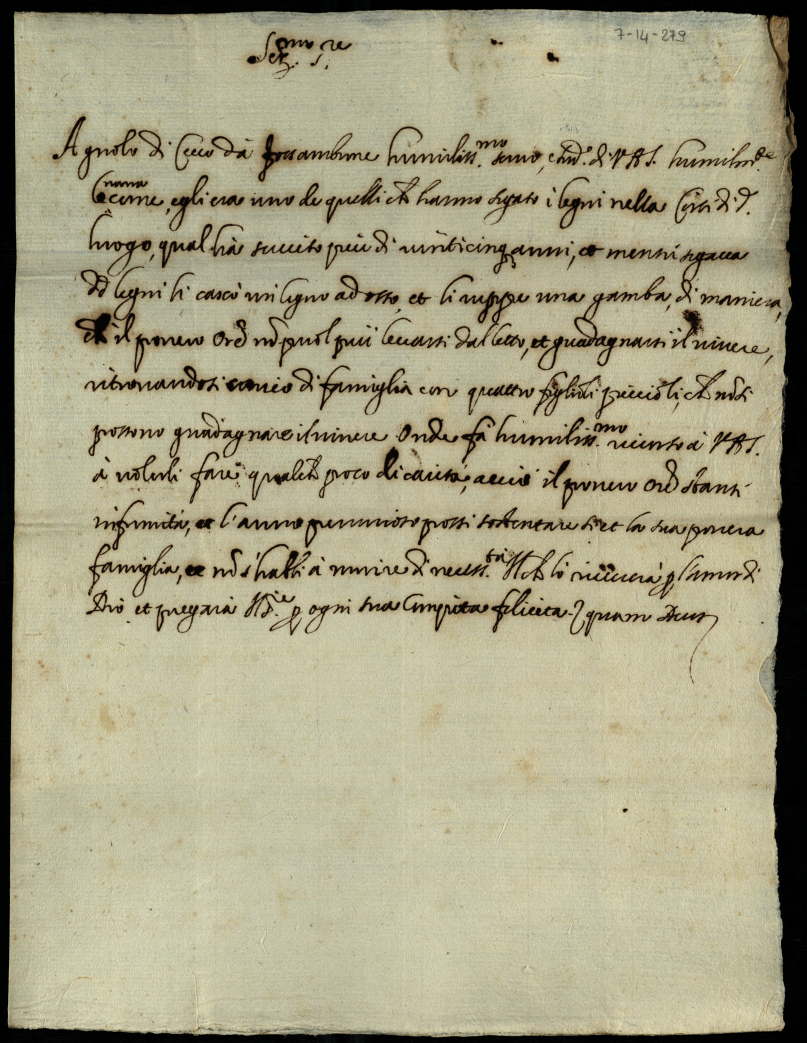 7-14-279
Ser.mo S.re
Agnolo di Cecco da Fossambrone humiliss.mo servo, e di V.A.S. humilm.te
narra come, egli era uno de quelli ch' hanno segato i legni nella Corte di d.
luogo, qual hà servito più di vinticinq anni, et mentre segava
dd legni li cascò un legno ad osso, et li ruppe una gamba, di maniera,
ch' il povero Ore nõ puol più levarsi dal letto, et guadagnarsi il vivere,
ritrovandosi carico di famiglia con quattro figlioli piccioli, ch' nõ si
possono guadagnare il vivere Onde fà humiliss.mo ricorso à V.A.S.
à volerli fare qualch' poco di carità, acciò il povero Ore stante
infirmità, et l'anno penurioso possi sostentare se et la sua povera
famiglia, et nõ s'habbi à morire di necess.tà Il ch' lo riceverà p l'amor di
Dio et pregarà N. D. p ogni sua compita felicità. quam Deus